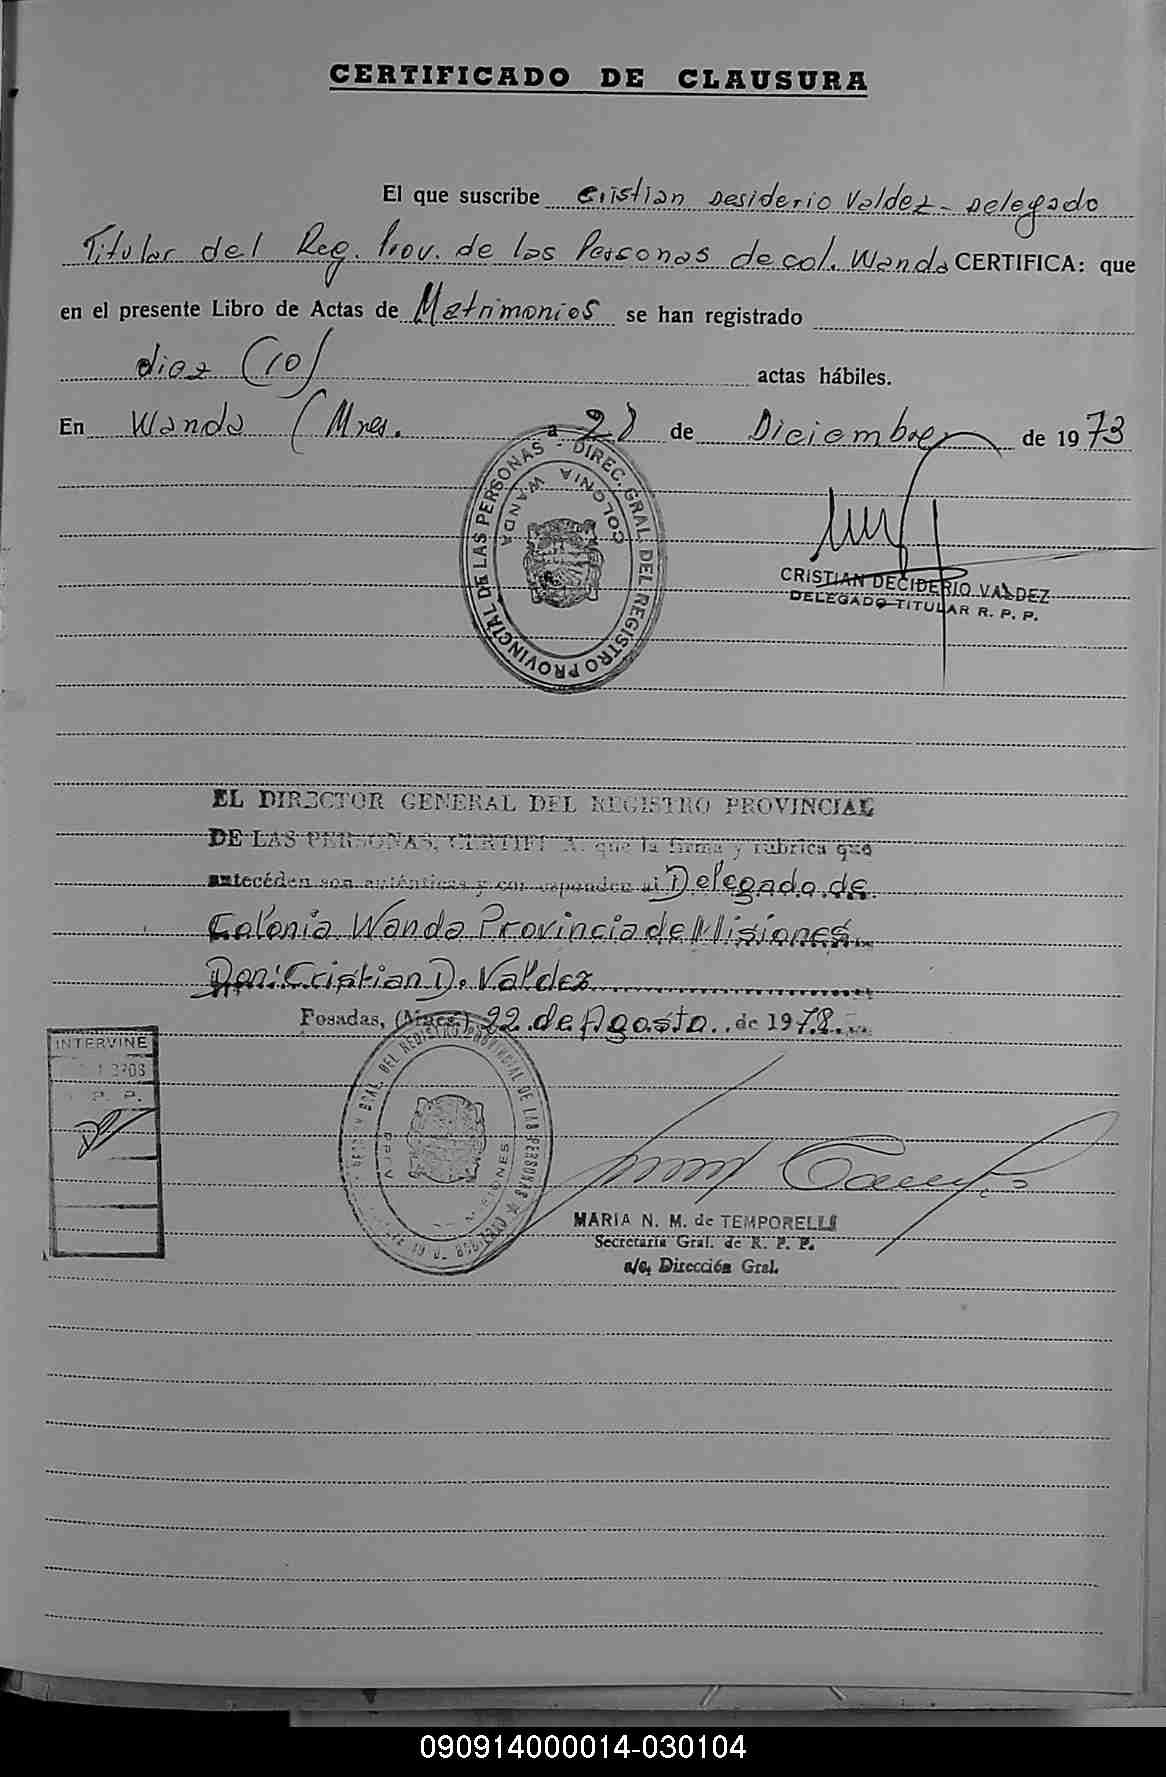 CERTIFICADO DE CLAUSURA
El que suscribe Cristian Desiderio Valdez - Delegado
Titular del Reg. Prov. de las Personas de col. Wanda CERTIFICA: que
en el presente Libro de Actas de Matrimonios se han registrado
diez (10) actas hábiles.
En Wanda (Mnes. a 28 de Diciembre de 1973
DIREC. GRAL. DEL REGISTRO PROVINCIAL DE LAS PERSONAS -
COLONIA WANDA
CRISTIAN DECIDERIO VALDEZ
DELEGADO TITULAR R. P. P.
EL DIRECTOR GENERAL DEL REGISTRO PROVINCIAL
DE LAS PERSONAS, CERTIFICA que la firma y rúbrica que
anteceden son auténticas y corresponden al Delegado de
Colonia Wanda Provincia de Misiones
Don: Cristian D. Valdez
Posadas, (Mnes.) 22 de Agosto de 1978
INTERVINE
P. P.
GRAL. DEL REGISTRO PROVINCIAL DE LAS PERSONAS
MISIONES
MARIA N. M. de TEMPORELLI
Secretaria Gral. de R. P. P.
a/c. Dirección Gral.
090914000014-030104